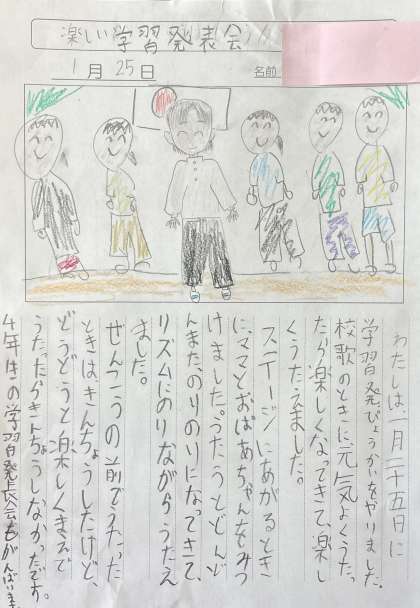 楽しい学習発表会
1月25日
名前
わたしは、一月二十五日に
学習発ぴょうかいをやりました。
校歌のときに元気よくうたっ
たら楽しくなってきて、楽し
くうたえました。
ステージにあがるとき
に、ママとおばあちゃんをみつ
けました。うたうとどんど
んまた、のりのりになってきて、
リズムにのりながらうたえ
ました。
ぜんこうの前でうたった
ときは、きんちょうしたけど、
どうどうと楽しくまえで
うたったらきんちょうしなかったです。
4年生の学習発表会もがんばります。